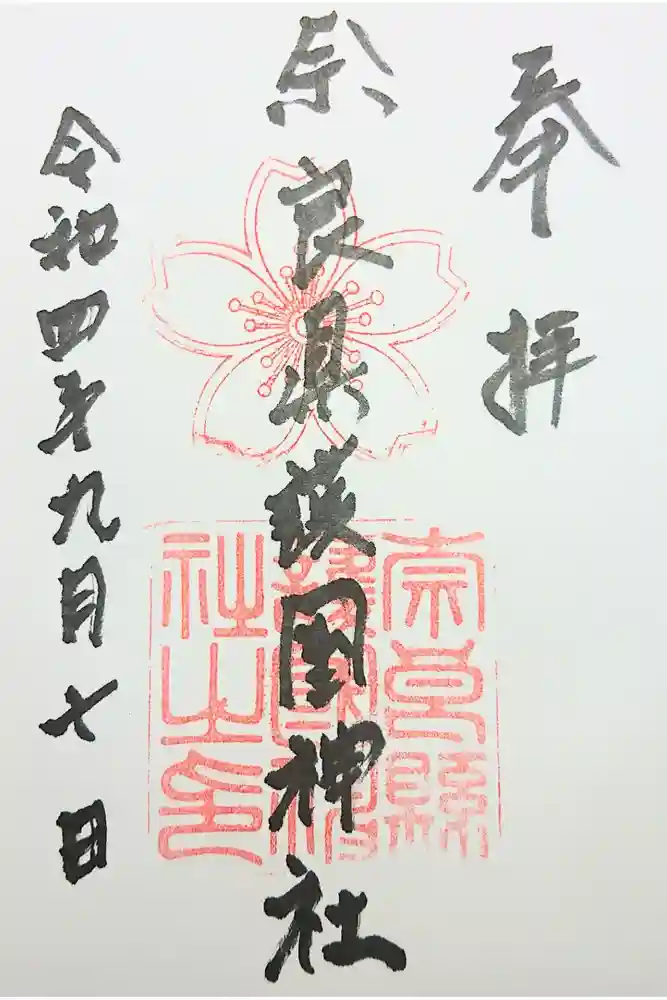 奉拝
奈良県護国神社
奈良縣護國神社之印
令和四年九月七日